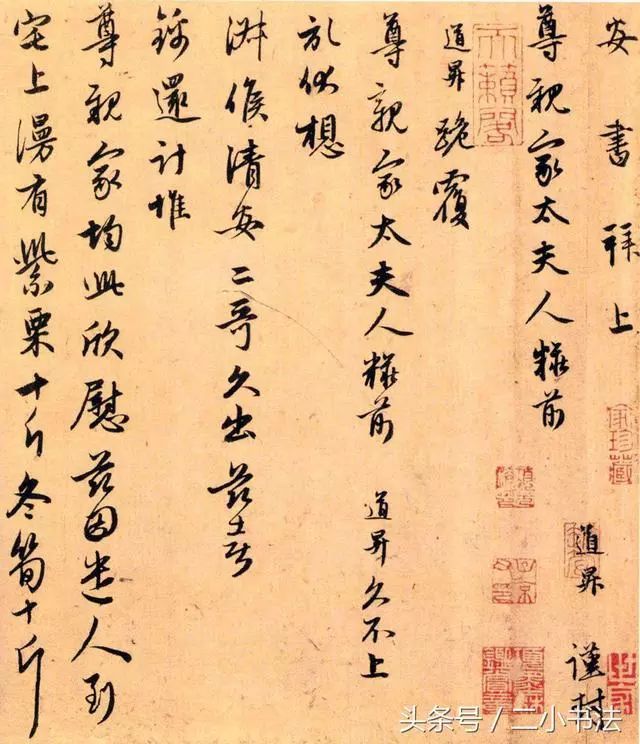 安書拜上 道昇 謹封
尊親家太夫人粧前
道昇跪覆
尊親家太夫人粧前 道昇久不上
狀伏想
淑候清安二哥久出茲喜
錦還計惟
尊親家均此欣慰茲因遣人到
宅上漫有紫栗十斤冬筍十斤
天籟閣
家珍藏
头条号 / 二小书法